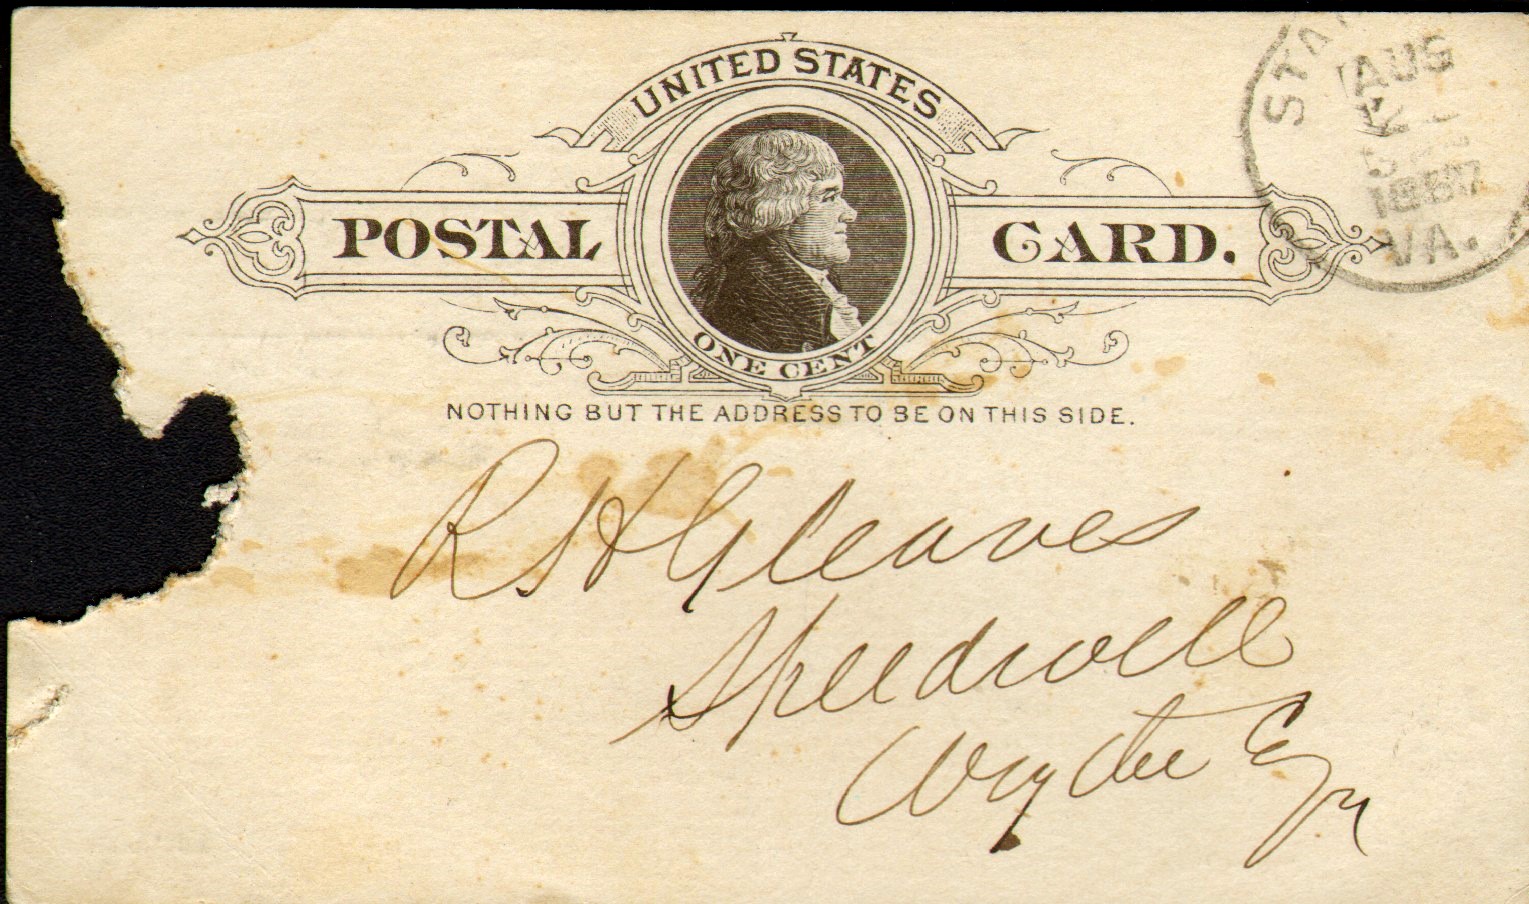 UNITED STATES
POSTAL CARD.
ONE CENT
NOTHING BUT THE ADDRESS TO BE ON THIS SIDE.
R S H Gleaves
Speedwell
Wythe
AUG
1887
VA.